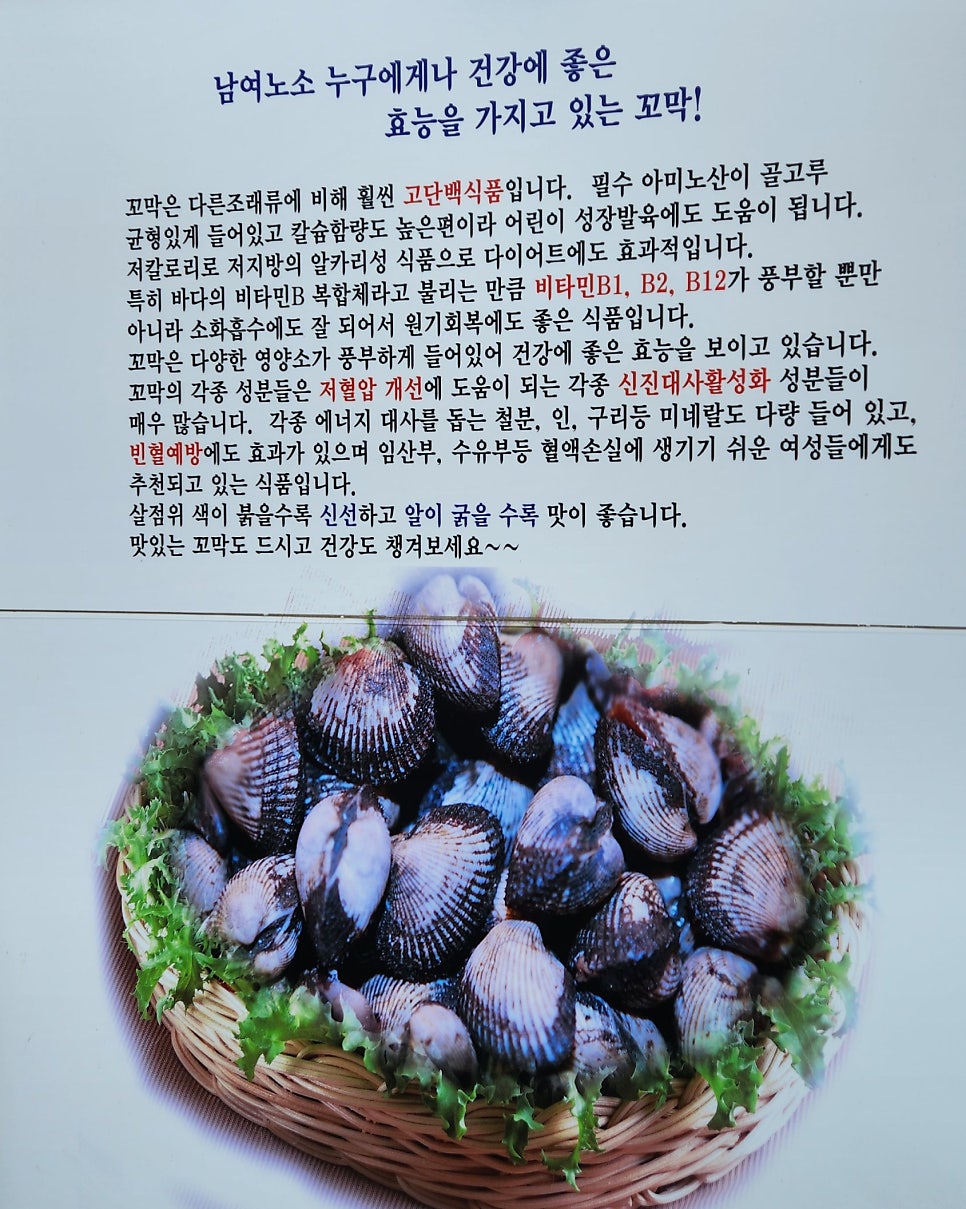 남여노소 누구에게나 건강에 좋은
효능을 가지고 있는 꼬막!
꼬막은 다른조래류에 비해 훨씬 고단백식품입니다. 필수 아미노산이 골고루
균형있게 들어있고 칼슘함량도 높은편이라 어린이 성장발육에도 도움이 됩니다.
저칼로리로 저지방의 알카리성 식품으로 다이어트에도 효과적입니다.
특히 바다의 비타민B 복합체라고 불리는 만큼 비타민B1, B2, B12가 풍부할 뿐만
아니라 소화흡수에도 잘 되어서 원기회복에도 좋은 식품입니다.
꼬막은 다양한 영양소가 풍부하게 들어있어 건강에 좋은 효능을 보이고 있습니다.
꼬막의 각종 성분들은 저혈압 개선에 도움이 되는 각종 신진대사활성화 성분들이
매우 많습니다. 각종 에너지 대사를 돕는 철분, 인, 구리등 미네랄도 다량 들어 있고,
빈혈예방에도 효과가 있으며 임산부, 수유부등 혈액손실에 생기기 쉬운 여성들에게도
추천되고 있는 식품입니다.
살점위 색이 붉을수록 신선하고 알이 굵을 수록 맛이 좋습니다.
맛있는 꼬막도 드시고 건강도 챙겨보세요~~